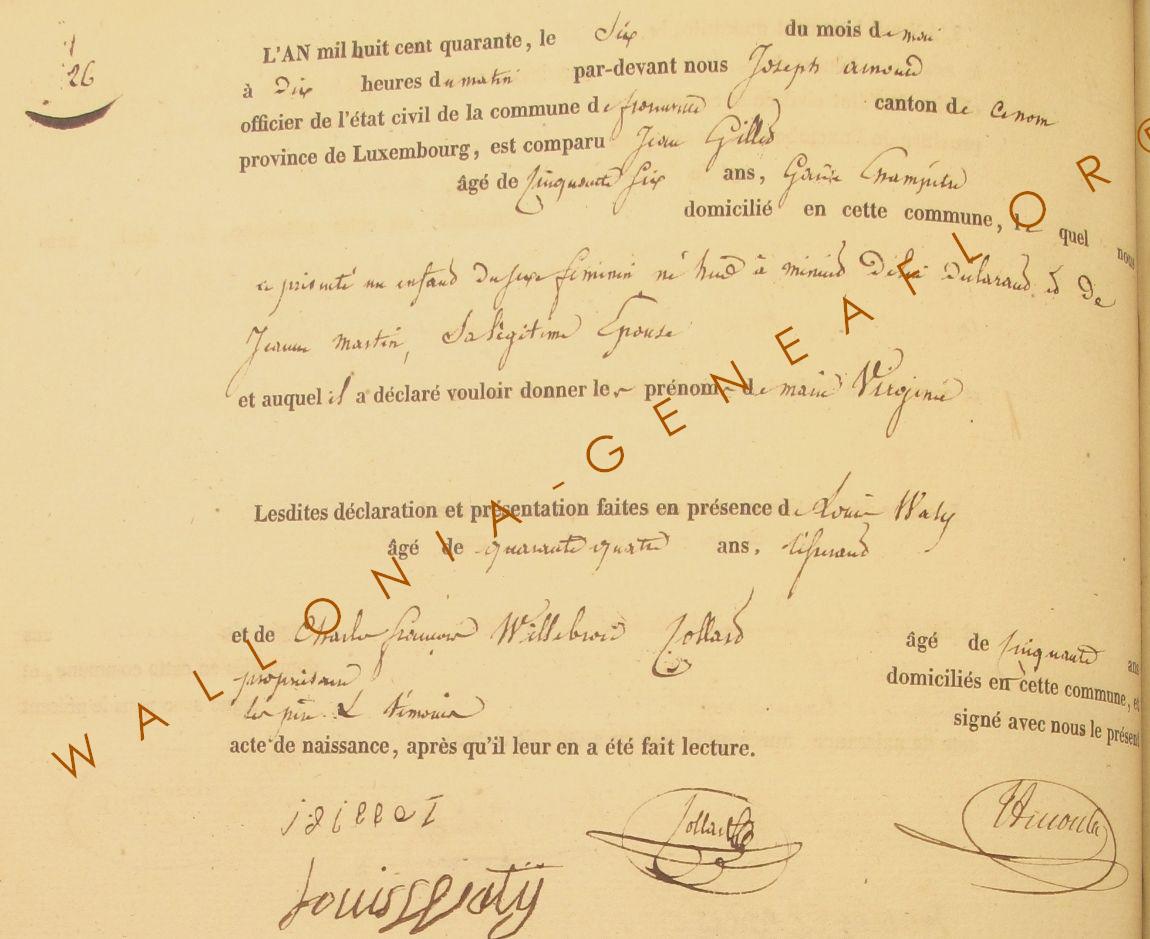 26
L'AN mil huit cent quarante, le six du mois de mai
à dix heures du matin par-devant nous Joseph arnould
officier de l'état civil de la commune de canton de
province de Luxembourg, est comparu Jean Gillet
âgé de cinquante six ans, Garde Champêtre
domicilié en cette commune, le quel nous
a présenté un enfant du sexe féminin né hier à minuit de lui declarant et de
Jeanne Martin, Sa légitime Epouse
et auquel il a déclaré vouloir donner les prénoms de marie Virginie
Lesdites déclaration et présentation faites en présence de Louis Waty
âgé de quarante quatre ans, tisserand
et de Charles françois Willebrord Collard âgé de cinquante ans
propriétaire domiciliés en cette commune, et
les père & témoins signé avec nous le présent
acte de naissance, après qu'il leur en a été fait lecture.
jgillet Collard
Louis Waty
WALLONIA-GENEAFLOR